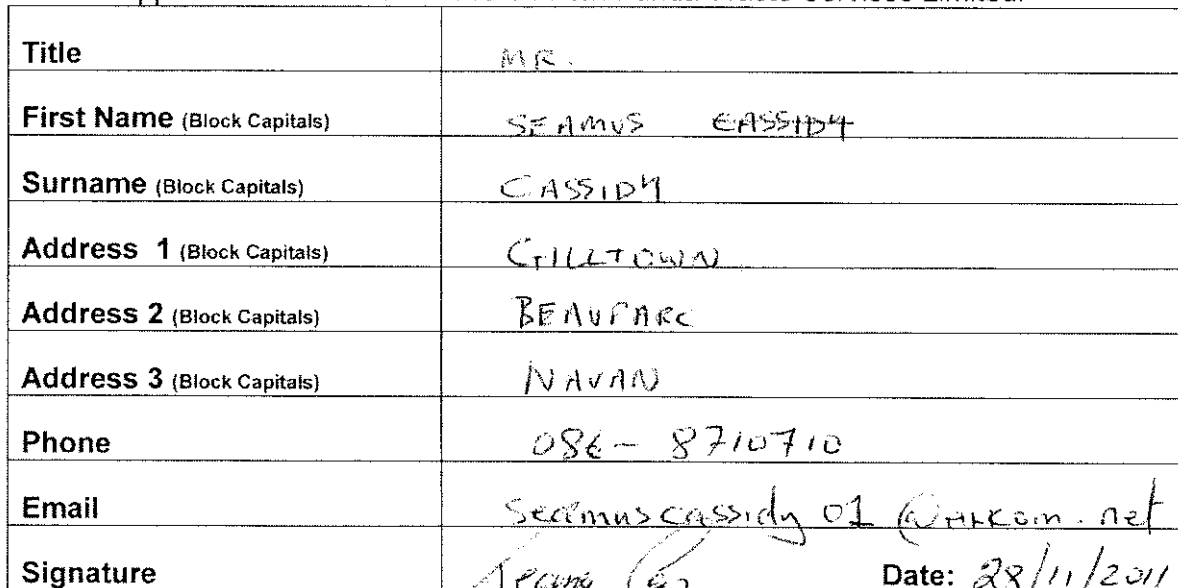 Services Limited.
Title MR.
First Name (Block Capitals) SEAMUS CASSIDY
Surname (Block Capitals) CASSIDY
Address 1 (Block Capitals) GILLTOWN
Address 2 (Block Capitals) BEAUPARC
Address 3 (Block Capitals) NAVAN
Phone 086 - 8710710
Email seamuscassidy 01 @ .net
Signature Date: 28/11/2011